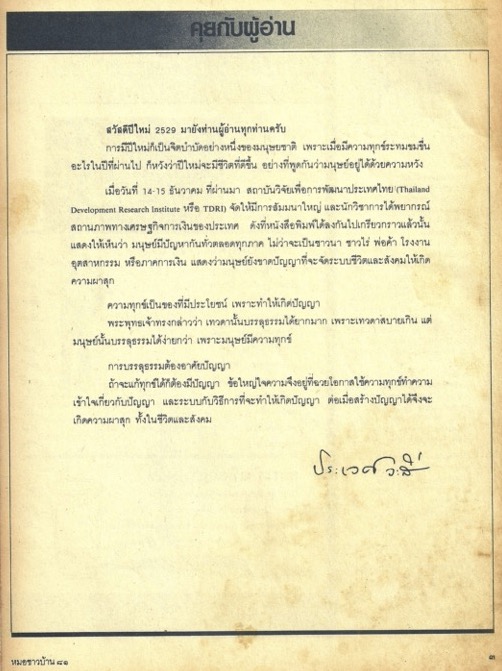 คุยกับผู้อ่าน
สวัสดีปีใหม่ 2529 มายังท่านผู้อ่านทุกท่านครับ
การมีปีใหม่ก็เป็นจิตบำบัดอย่างหนึ่งของมนุษยชาติ เพราะเมื่อมีความทุกข์ระทมขมขื่น
อะไรในปีที่ผ่านไป ก็หวังว่าปีใหม่จะมีชีวิตที่ดีขึ้น อย่างที่พูดกันว่ามนุษย์อยู่ได้ด้วยความหวัง
เมื่อวันที่ 14-15 ธันวาคม ที่ผ่านมา สถาบันวิจัยเพื่อการพัฒนาประเทศไทย (Thailand
Development Research Institute หรือ TDRI) จัดให้มีการสัมมนาใหญ่ และนักวิชาการได้พยากรณ์
สถานภาพทางเศรษฐกิจการเงินของประเทศ ดังที่หนังสือพิมพ์ได้ลงกันไปเกรียวกราวแล้วนั้น
แสดงให้เห็นว่า มนุษย์มีปัญหากันทั่วตลอดทุกภาค ไม่ว่าจะเป็นชาวนา ชาวไร่ พ่อค้า โรงงาน
อุตสาหกรรม หรือภาคการเงิน แสดงว่ามนุษย์ยังขาดปัญญาที่จะจัดระบบชีวิตและสังคมให้เกิด
ความผาสุก
ความทุกข์เป็นของที่มีประโยชน์ เพราะทำให้เกิดปัญญา
พระพุทธเจ้าทรงกล่าวว่า เทวดานั้นบรรลุธรรมได้ยากมาก เพราะเทวดาสบายเกิน แต่
มนุษย์นั้นบรรลุธรรมได้ง่ายกว่า เพราะมนุษย์มีความทุกข์
การบรรลุธรรมต้องอาศัยปัญญา
ถ้าจะแก้ทุกข์ได้ก็ต้องมีปัญญา ข้อใหญ่ใจความจึงอยู่ที่ฉวยโอกาสใช้ความทุกข์ทำความ
เข้าใจเกี่ยวกับปัญญา และระบบกับวิธีการที่จะทำให้เกิดปัญญา ต่อเมื่อสร้างปัญญาได้จึงจะ
เกิดความผาสุก ทั้งในชีวิตและสังคม
ประเวศ วะสี
หมอชาวบ้าน ๘๑
๓